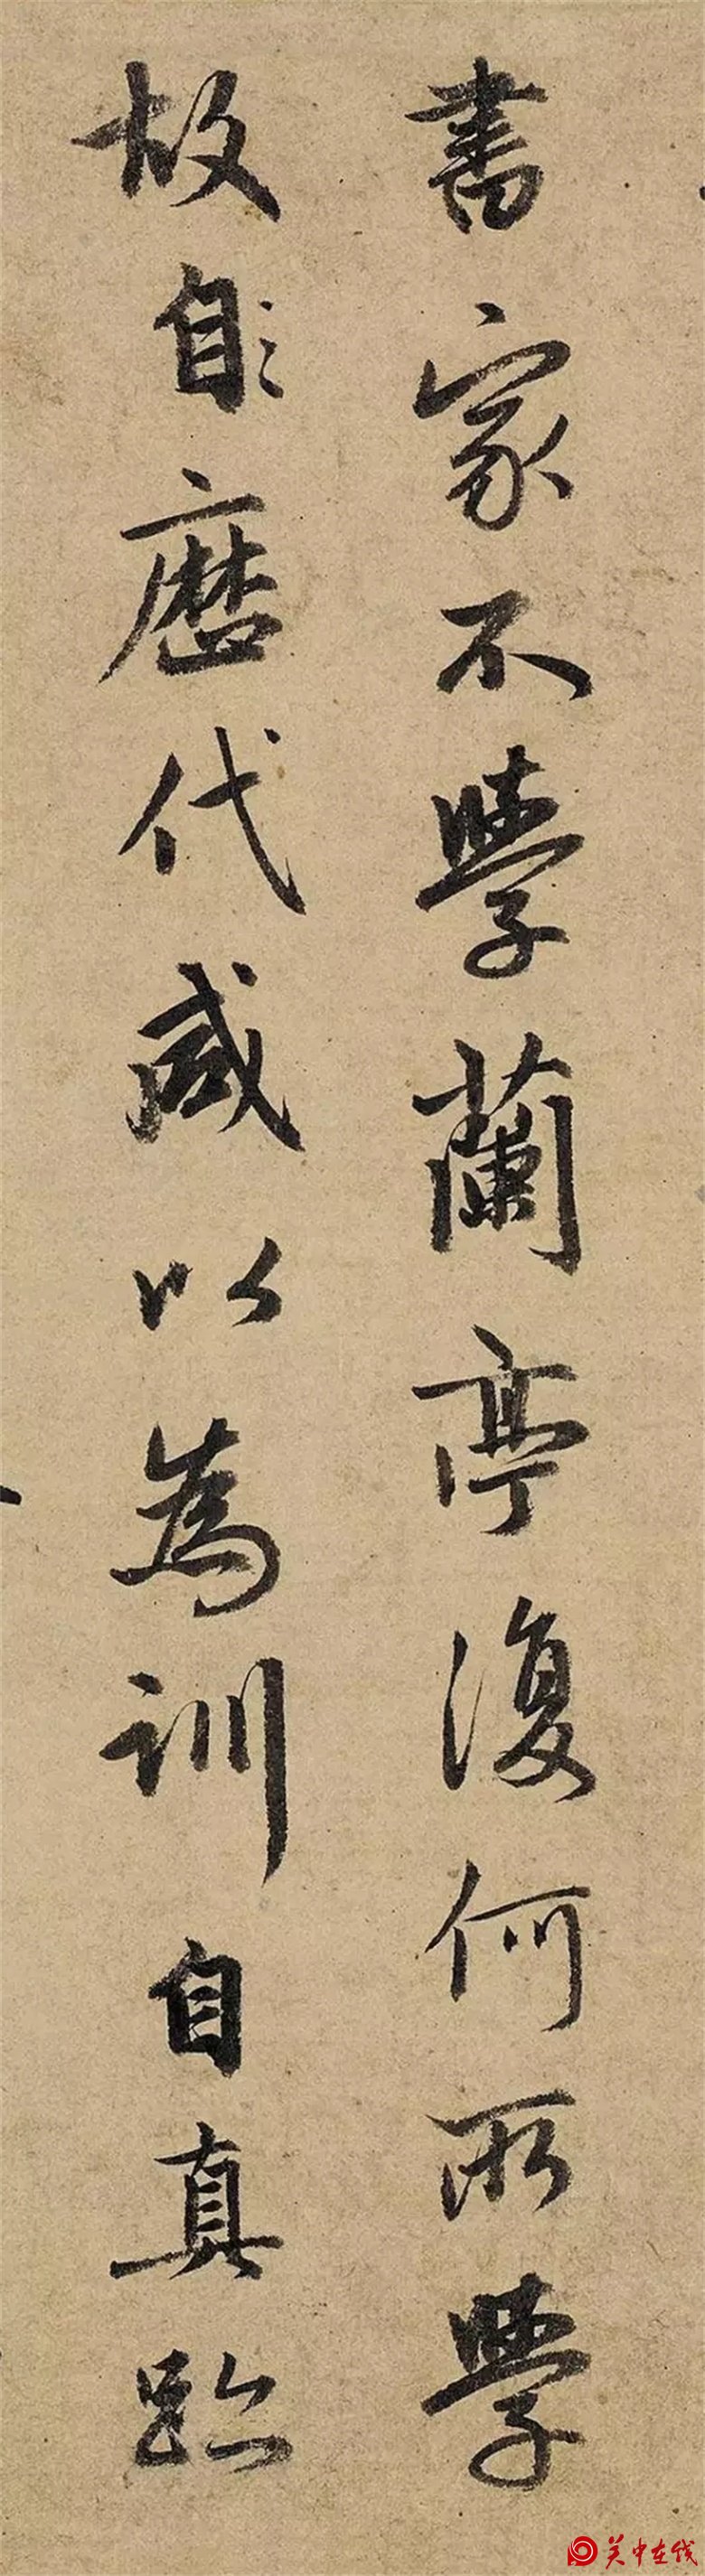 書家不學蘭亭復何所學
故自歷代咸以為訓自真跡
关中在线